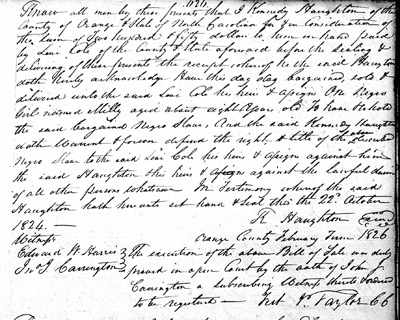 Know all men by these presents that I Kennedy Haughton of the
County of Orange & State of North Carolina for & in Consideration of
the Sum of Two hundred & fifty dollars to him in hand paid
by Levi Cole of the County & State aforesaid before the sealing &
delivering of these presents the receipt whereof he the said Haughton
doth hereby acknowledge Have this day bargained, sold &
delivered unto the said Levi Cole his heirs & assigns One Negro
Girl named Milly aged about eight years old To have & to hold
the said bargained Negro Slave, And the said Kennedy Haughton
doth Warrant & forever defend the right & title of the
Negro Slave to the said Levi Cole his heirs & assigns against him
the said Haughton his heirs & assigns against the lawful claims
of all other persons whatsoever In Testimony whereof the said
Haughton hath hereunto set hand & seal this the 22d October
1824.—
K Haughton
Witness
Orange County February Term 1826
Edward W Harris
The execution of the above Bill of Sale was duly
Jno J Carrington
proved in open Court by the oath of John J
Carrington a Subscribing Witness thereto & ordered
to be registered — Test J Taylor CC